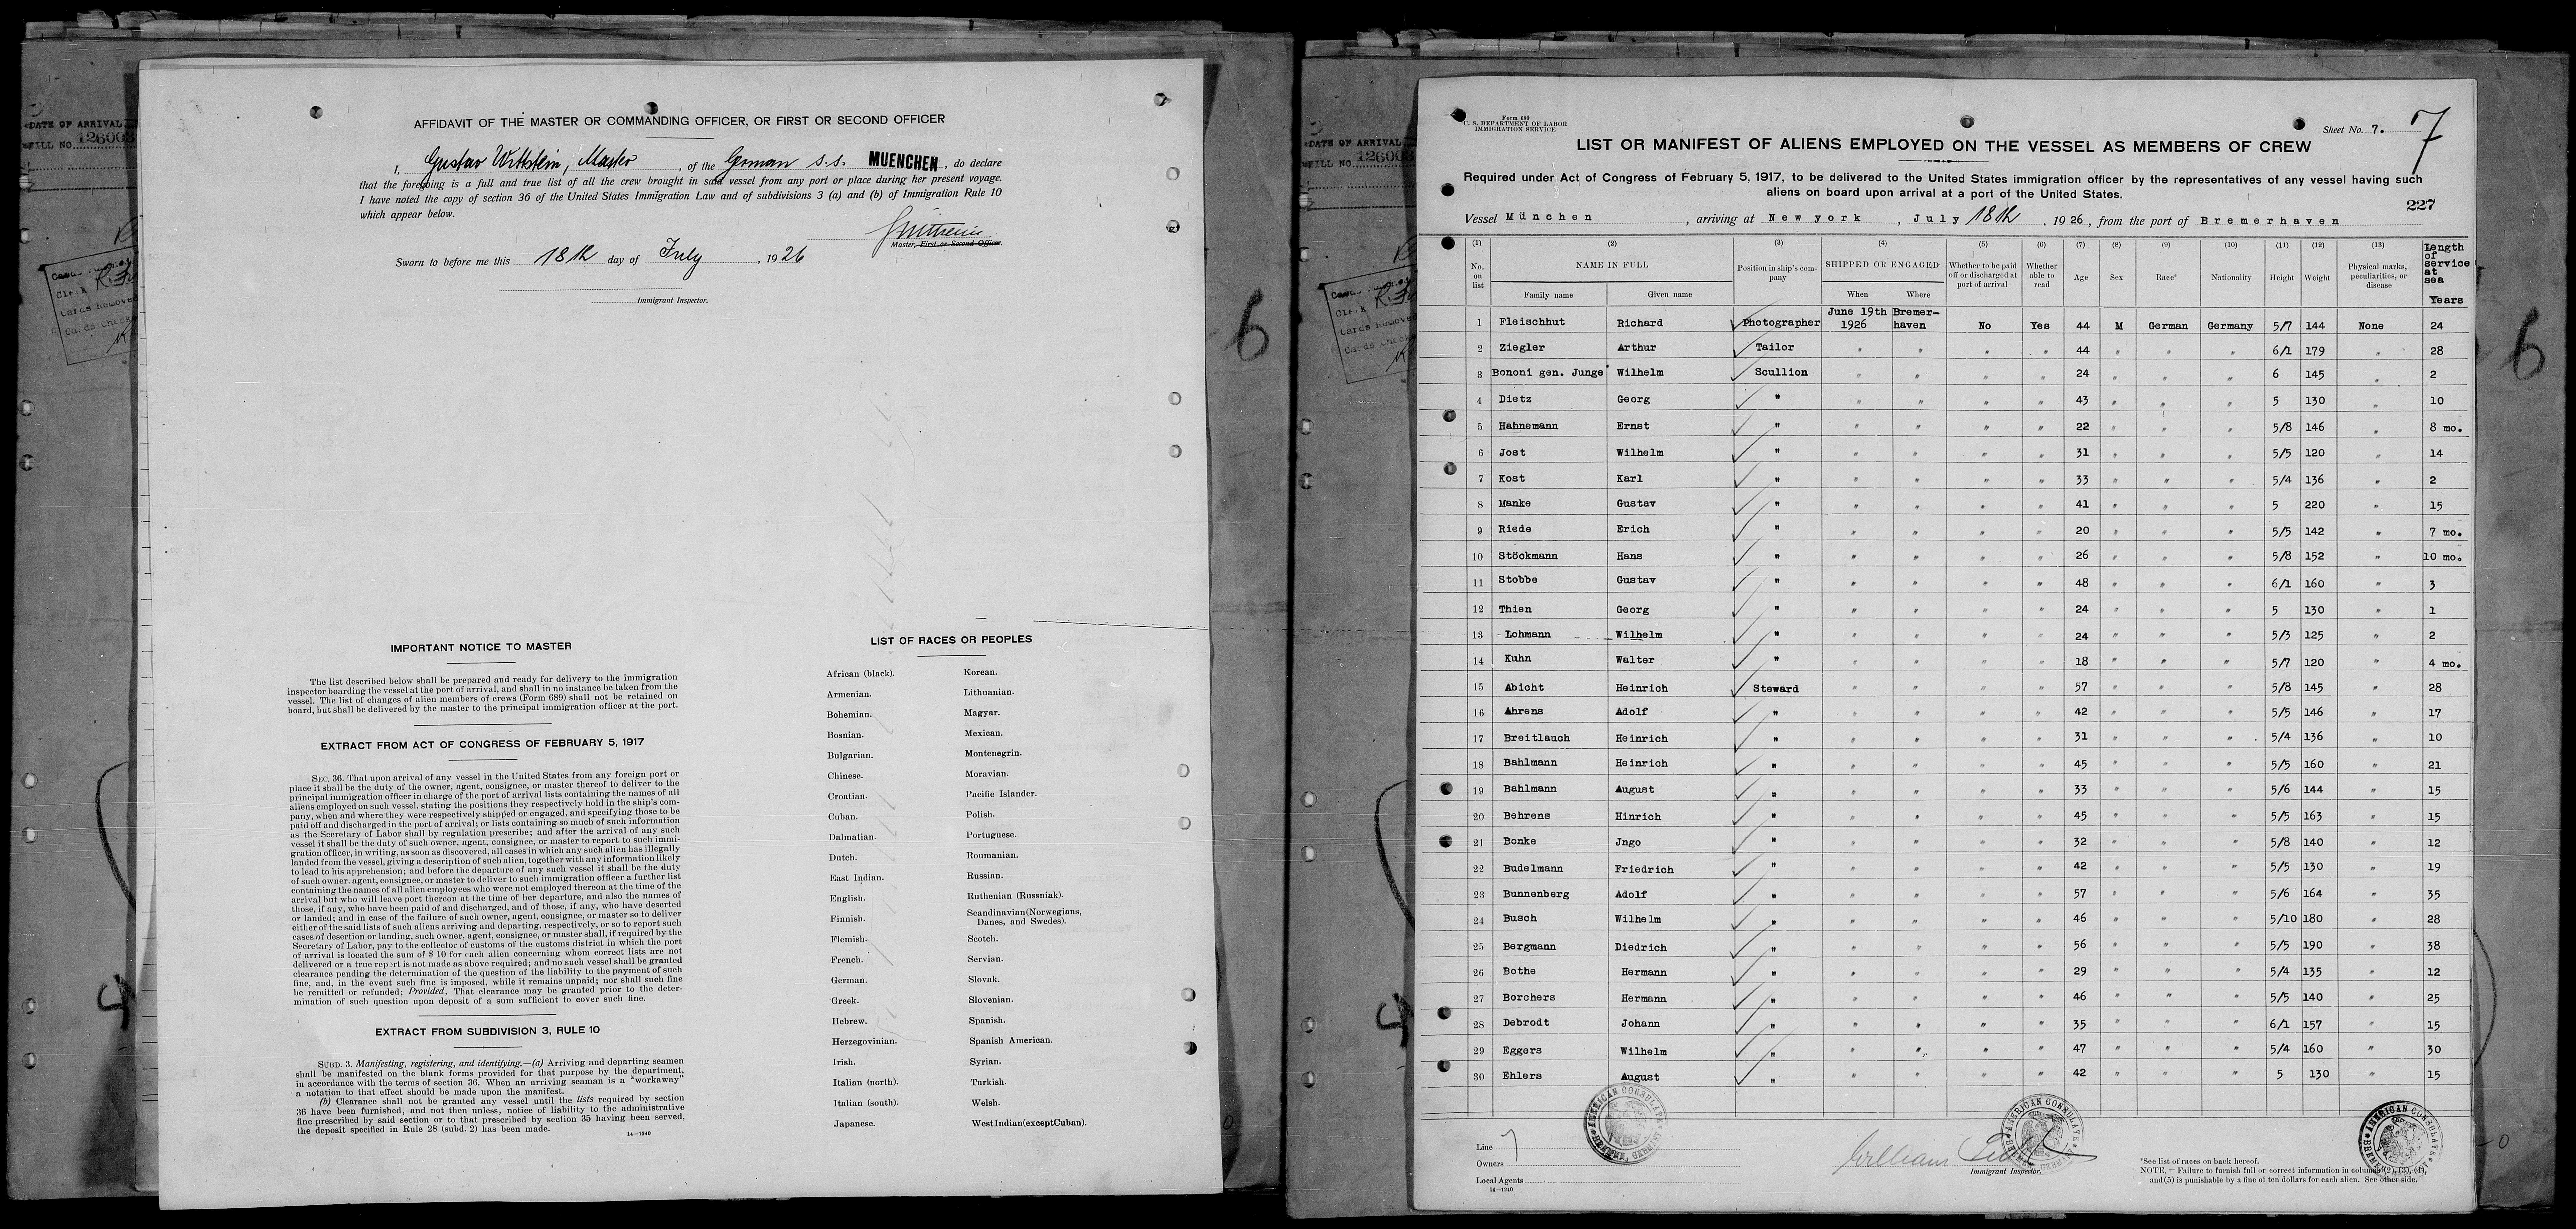 DATE OF ARRIVAL
FILL NO. 126003
AFFIDAVIT OF THE MASTER OR COMMANDING OFFICER, OR FIRST OR SECOND OFFICER
I, Gustav Wittstein, Master, of the German s.s. MUENCHEN, do declare
that the foregoing is a full and true list of all the crew brought in said vessel from any port or place during her present voyage.
I have noted the copy of section 36 of the United States Immigration Law and of subdivisions 3 (a) and (b) of Immigration Rule 10
which appear below.
Master, First or Second Officer.
Sworn to before me this 18th day of July, 1926
Immigrant Inspector.
IMPORTANT NOTICE TO MASTER
The list described below shall be prepared and ready for delivery to the immigration
inspector boarding the vessel at the port of arrival, and shall in no instance be taken from the
vessel. The list of changes of alien members of crews (Form 689) shall not be retained on
board, but shall be delivered by the master to the principal immigration officer at the port.
EXTRACT FROM ACT OF CONGRESS OF FEBRUARY 5, 1917
SEC. 36. That upon arrival of any vessel in the United States from any foreign port or
place it shall be the duty of the owner, agent, consignee, or master thereof to deliver to the
principal immigration officer in charge of the port of arrival lists containing the names of all
aliens employed on such vessel. stating the positions they respectively hold in the ship's com-
pany, when and where they were respectively shipped or engaged, and specifying those to be
paid off and discharged in the port of arrival; or lists containing so much of such information
as the Secretary of Labor shall by regulation prescribe; and after the arrival of any such
vessel it shall be the duty of such owner, agent, consignee, or master to report to such immi-
gration officer, in writing, as soon as discovered, all cases in which any such alien has illegally
landed from the vessel, giving a description of such alien, together with any information likely
to lead to his apprehension; and before the departure of any such vessel it shall be the duty
of such owner, agent, consignee, or master to deliver to such immigration officer a further list
containing the names of all alien employees who were not employed thereon at the time of the
arrival but who will leave port thereon at the time of her departure, and also the names of
those, if any, who have been paid of and discharged, and of those, if any, who have deserted
or landed; and in case of the failure of such owner, agent, consignee, or master so to deliver
either of the said lists of such aliens arriving and departing, respectively, or so to report such
cases of desertion or landing, such owner, agent, consignee, or master shall, if required by the
Secretary of Labor, pay to the collector of customs of the customs district in which the port
of arrival is located the sum of $ 10 for each alien concerning whom correct lists are not
delivered or a true report is not made as above required; and no such vessel shall be granted
clearance pending the determination of the question of the liability to the payment of such
fine, and, in the event such fine is imposed, while it remains unpaid; nor shall such fine
be remitted or refunded; Provided, That clearance may be granted prior to the deter-
mination of such question upon deposit of a sum sufficient to cover such fine.
EXTRACT FROM SUBDIVISION 3, RULE 10
SUBD. 3. Manifesting, registering, and identifying.—(a) Arriving and departing seamen
shall be manifested on the blank forms provided for that purpose by the department,
in accordance with the terms of section 36. When an arriving seaman is a "workaway"
a notation to that effect should be made upon the manifest.
(b) Clearance shall not be granted any vessel until the lists required by section
36 have been furnished, and not then unless, notice of liability to the administrative
fine prescribed by said section or to that prescribed by section 35 having been served,
the deposit specified in Rule 28 (subd. 2) has been made.
14—1240
LIST OF RACES OR PEOPLES
African (black). Korean.
Armenian. Lithuanian.
Bohemian. Magyar.
Bosnian. Mexican.
Bulgarian. Montenegrin.
Chinese. Moravian.
Croatian. Pacific Islander.
Cuban. Polish.
Dalmatian. Portuguese.
Dutch. Roumanian.
East Indian. Russian.
English. Ruthenian (Russniak).
Finnish. Scandinavian(Norwegians,
Danes, and Swedes).
Flemish. Scotch.
French. Servian.
German. Slovak.
Greek. Slovenian.
Hebrew. Spanish.
Herzegovinian. Spanish American.
Irish. Syrian.
Italian (north). Turkish.
Italian (south). Welsh.
Japanese. WestIndian(exceptCuban).
6
4
DATE OF ARRIVAL
FILL NO. 126003
Form 680
U. S. DEPARTMENT OF LABOR
IMMIGRATION SERVICE
Sheet No. 7.
7
LIST OR MANIFEST OF ALIENS EMPLOYED ON THE VESSEL AS MEMBERS OF CREW
Required under Act of Congress of February 5, 1917, to be delivered to the United States immigration officer by the representatives of any vessel having such
aliens on board upon arrival at a port of the United States.
227
Vessel München, arriving at New york, July 18th, 1926, from the port of Bremerhaven
(1) (2) (3) (4) (5) (6) (7) (8) (9) (10) (11) (12) (13)
No. on list NAME IN FULL Family name Given name Position in ship's company SHIPPED OR ENGAGED When Where Whether to be paid off or discharged at port of arrival Whether able to read Age Sex Race* Nationality Height Weight Physical marks, peculiarities, or disease Length of service at sea Years
1 Fleischhut Richard Photographer June 19th 1926 Bremer-haven No Yes 44 M German Germany 5/7 144 None 24
2 Ziegler Arthur Tailor " " " " 44 " " " 6/1 179 " 28
3 Bononi gen. Junge Wilhelm Scullion " " " " 24 " " " 6 145 " 2
4 Dietz Georg " " " " " 43 " " " 5 130 " 10
5 Hahnemann Ernst " " " " " 22 " " " 5/8 146 " 8 mo.
6 Jost Wilhelm " " " " " 31 " " " 5/5 120 " 14
7 Kost Karl " " " " " 33 " " " 5/4 136 " 2
8 Manke Gustav " " " " " 41 " " " 5 220 " 15
9 Riede Erich " " " " " 20 " " " 5/5 142 " 7 mo.
10 Stöckmann Hans " " " " " 26 " " " 5/8 152 " 10 mo.
11 Stobbe Gustav " " " " " 48 " " " 6/1 160 " 3
12 Thien Georg " " " " " 24 " " " 5 130 " 1
13 Lohmann Wilhelm " " " " " 24 " " " 5/3 125 " 2
14 Kuhn Walter " " " " " 18 " " " 5/7 120 " 4 mo.
15 Abicht Heinrich Steward " " " " 57 " " " 5/8 145 " 28
16 Ahrens Adolf " " " " " 42 " " " 5/5 146 " 17
17 Breitlauch Heinrich " " " " " 31 " " " 5/4 136 " 10
18 Bahlmann Heinrich " " " " " 45 " " " 5/5 160 " 21
19 Bahlmann August " " " " " 33 " " " 5/6 144 " 15
20 Behrens Hinrich " " " " " 45 " " " 5/5 163 " 15
21 Bonke Jngo " " " " " 32 " " " 5/8 140 " 12
22 Budelmann Friedrich " " " " " 42 " " " 5/5 130 " 19
23 Bunnenberg Adolf " " " " " 57 " " " 5/6 164 " 35
24 Busch Wilhelm " " " " " 46 " " " 5/10 180 " 28
25 Bergmann Diedrich " " " " " 56 " " " 5/5 190 " 38
26 Bothe Hermann " " " " " 29 " " " 5/4 135 " 12
27 Borchers Hermann " " " " " 46 " " " 5/5 140 " 25
28 Debrodt Johann " " " " " 35 " " " 6/1 157 " 15
29 Eggers Wilhelm " " " " " 47 " " " 5/4 160 " 30
30 Ehlers August " " " " " 42 " " " 5 130 " 15
AMERICAN CONSULATE
AMERICAN CONSULATE
AMERICAN CONSULATE
Line
Owners
Local Agents
14—1240
William
Immigrant Inspector.
*See list of races on back hereof.
NOTE.—Failure to furnish full or correct information in columns (2), (3), (4),
and (5) is punishable by a fine of ten dollars for each alien. See other side.
6